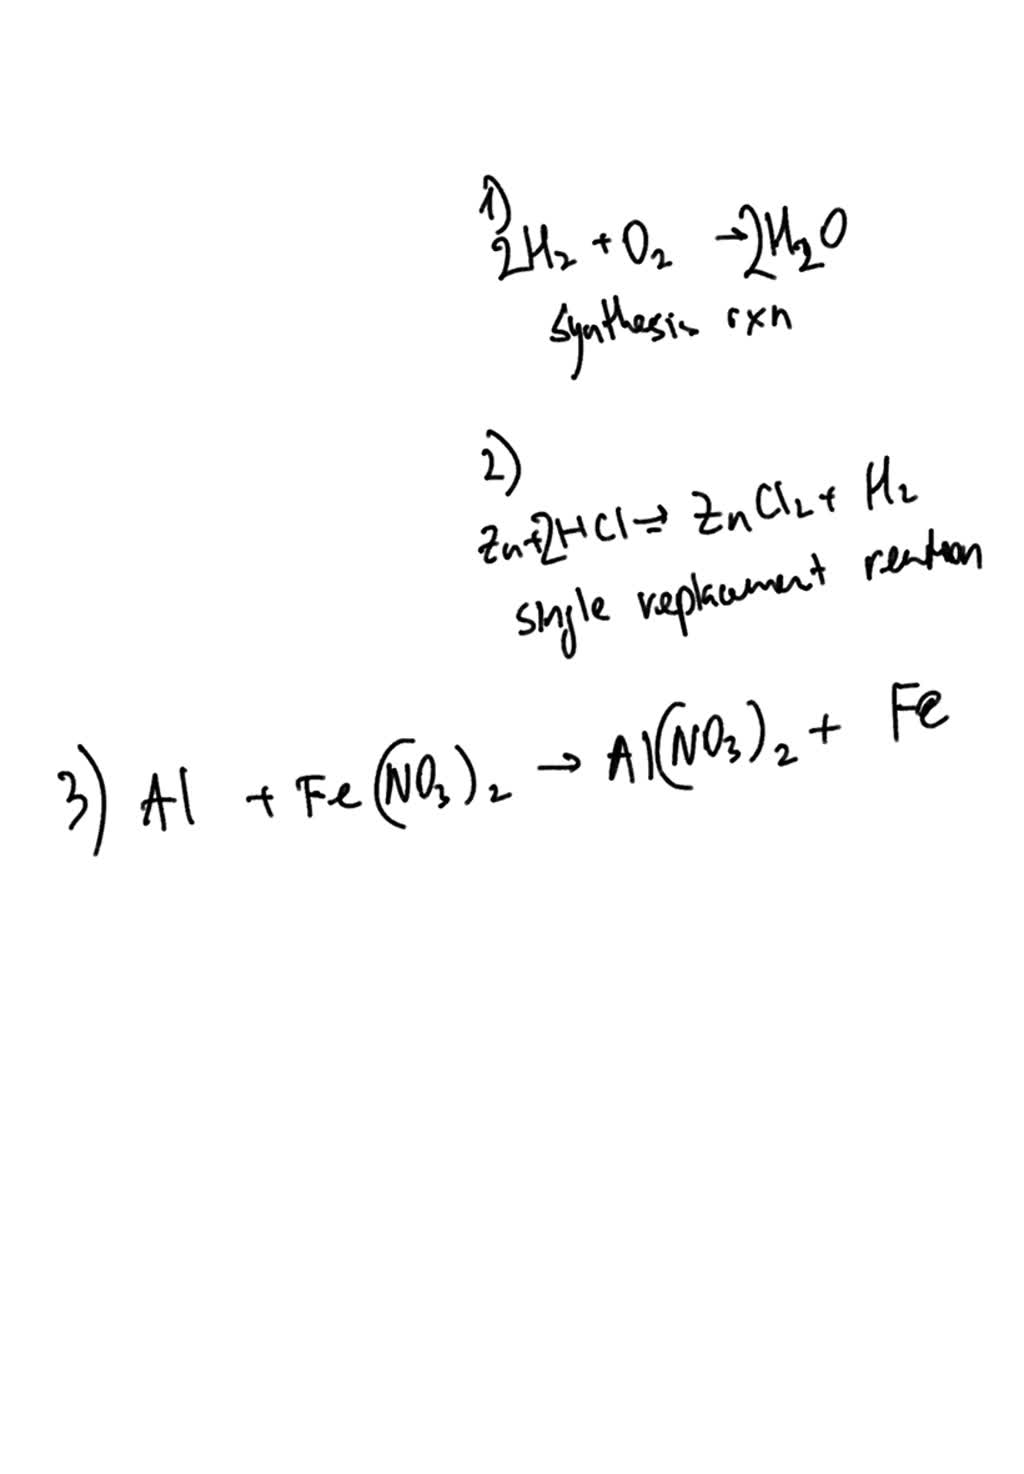 1)
2H₂ + O₂ → 2H₂O
synthesis rxn
2)
Zn + 2HCl → ZnCl₂ + H₂
single replacement reaction
3) Al + Fe(NO₃)₂ → Al(NO₃)₂ + Fe